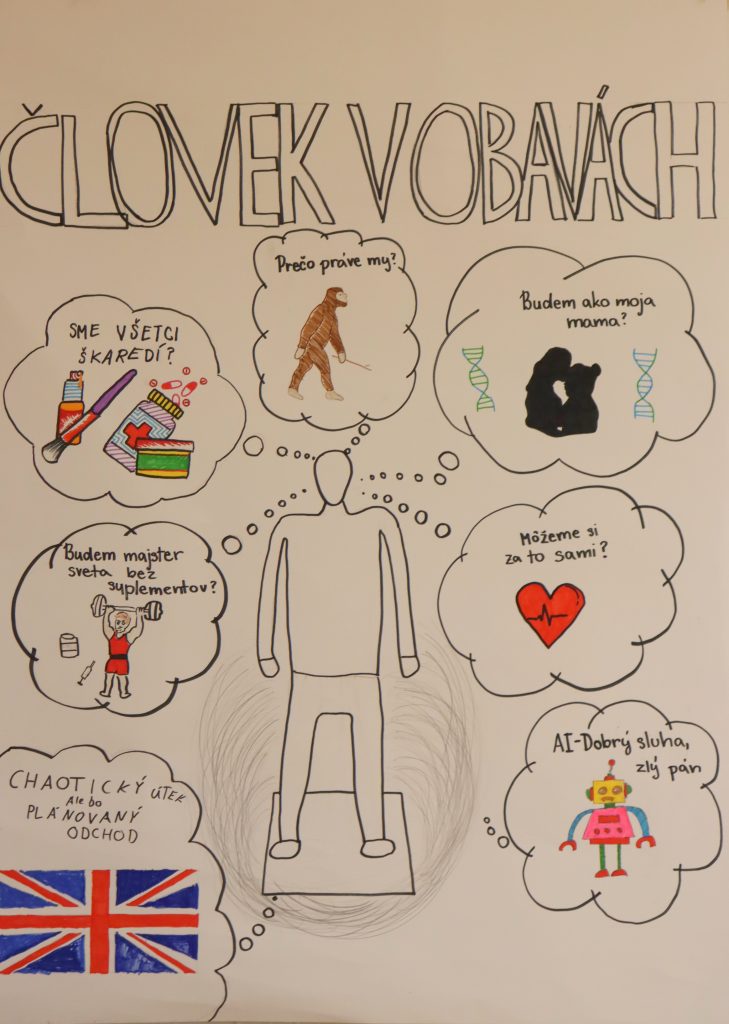 ČLOVEK V OBAVÁCH
Prečo práve my?
SME VŠETCI
ŠKAREDÍ?
Budem ako moja
mama?
Budem majster
sveta bez
suplementov?
Môžeme si
za to sami?
CHAOTICKÝ ÚTEK
Alebo
PLÁNOVANÝ
ODCHOD
AI-Dobrý sluha,
zlý pán